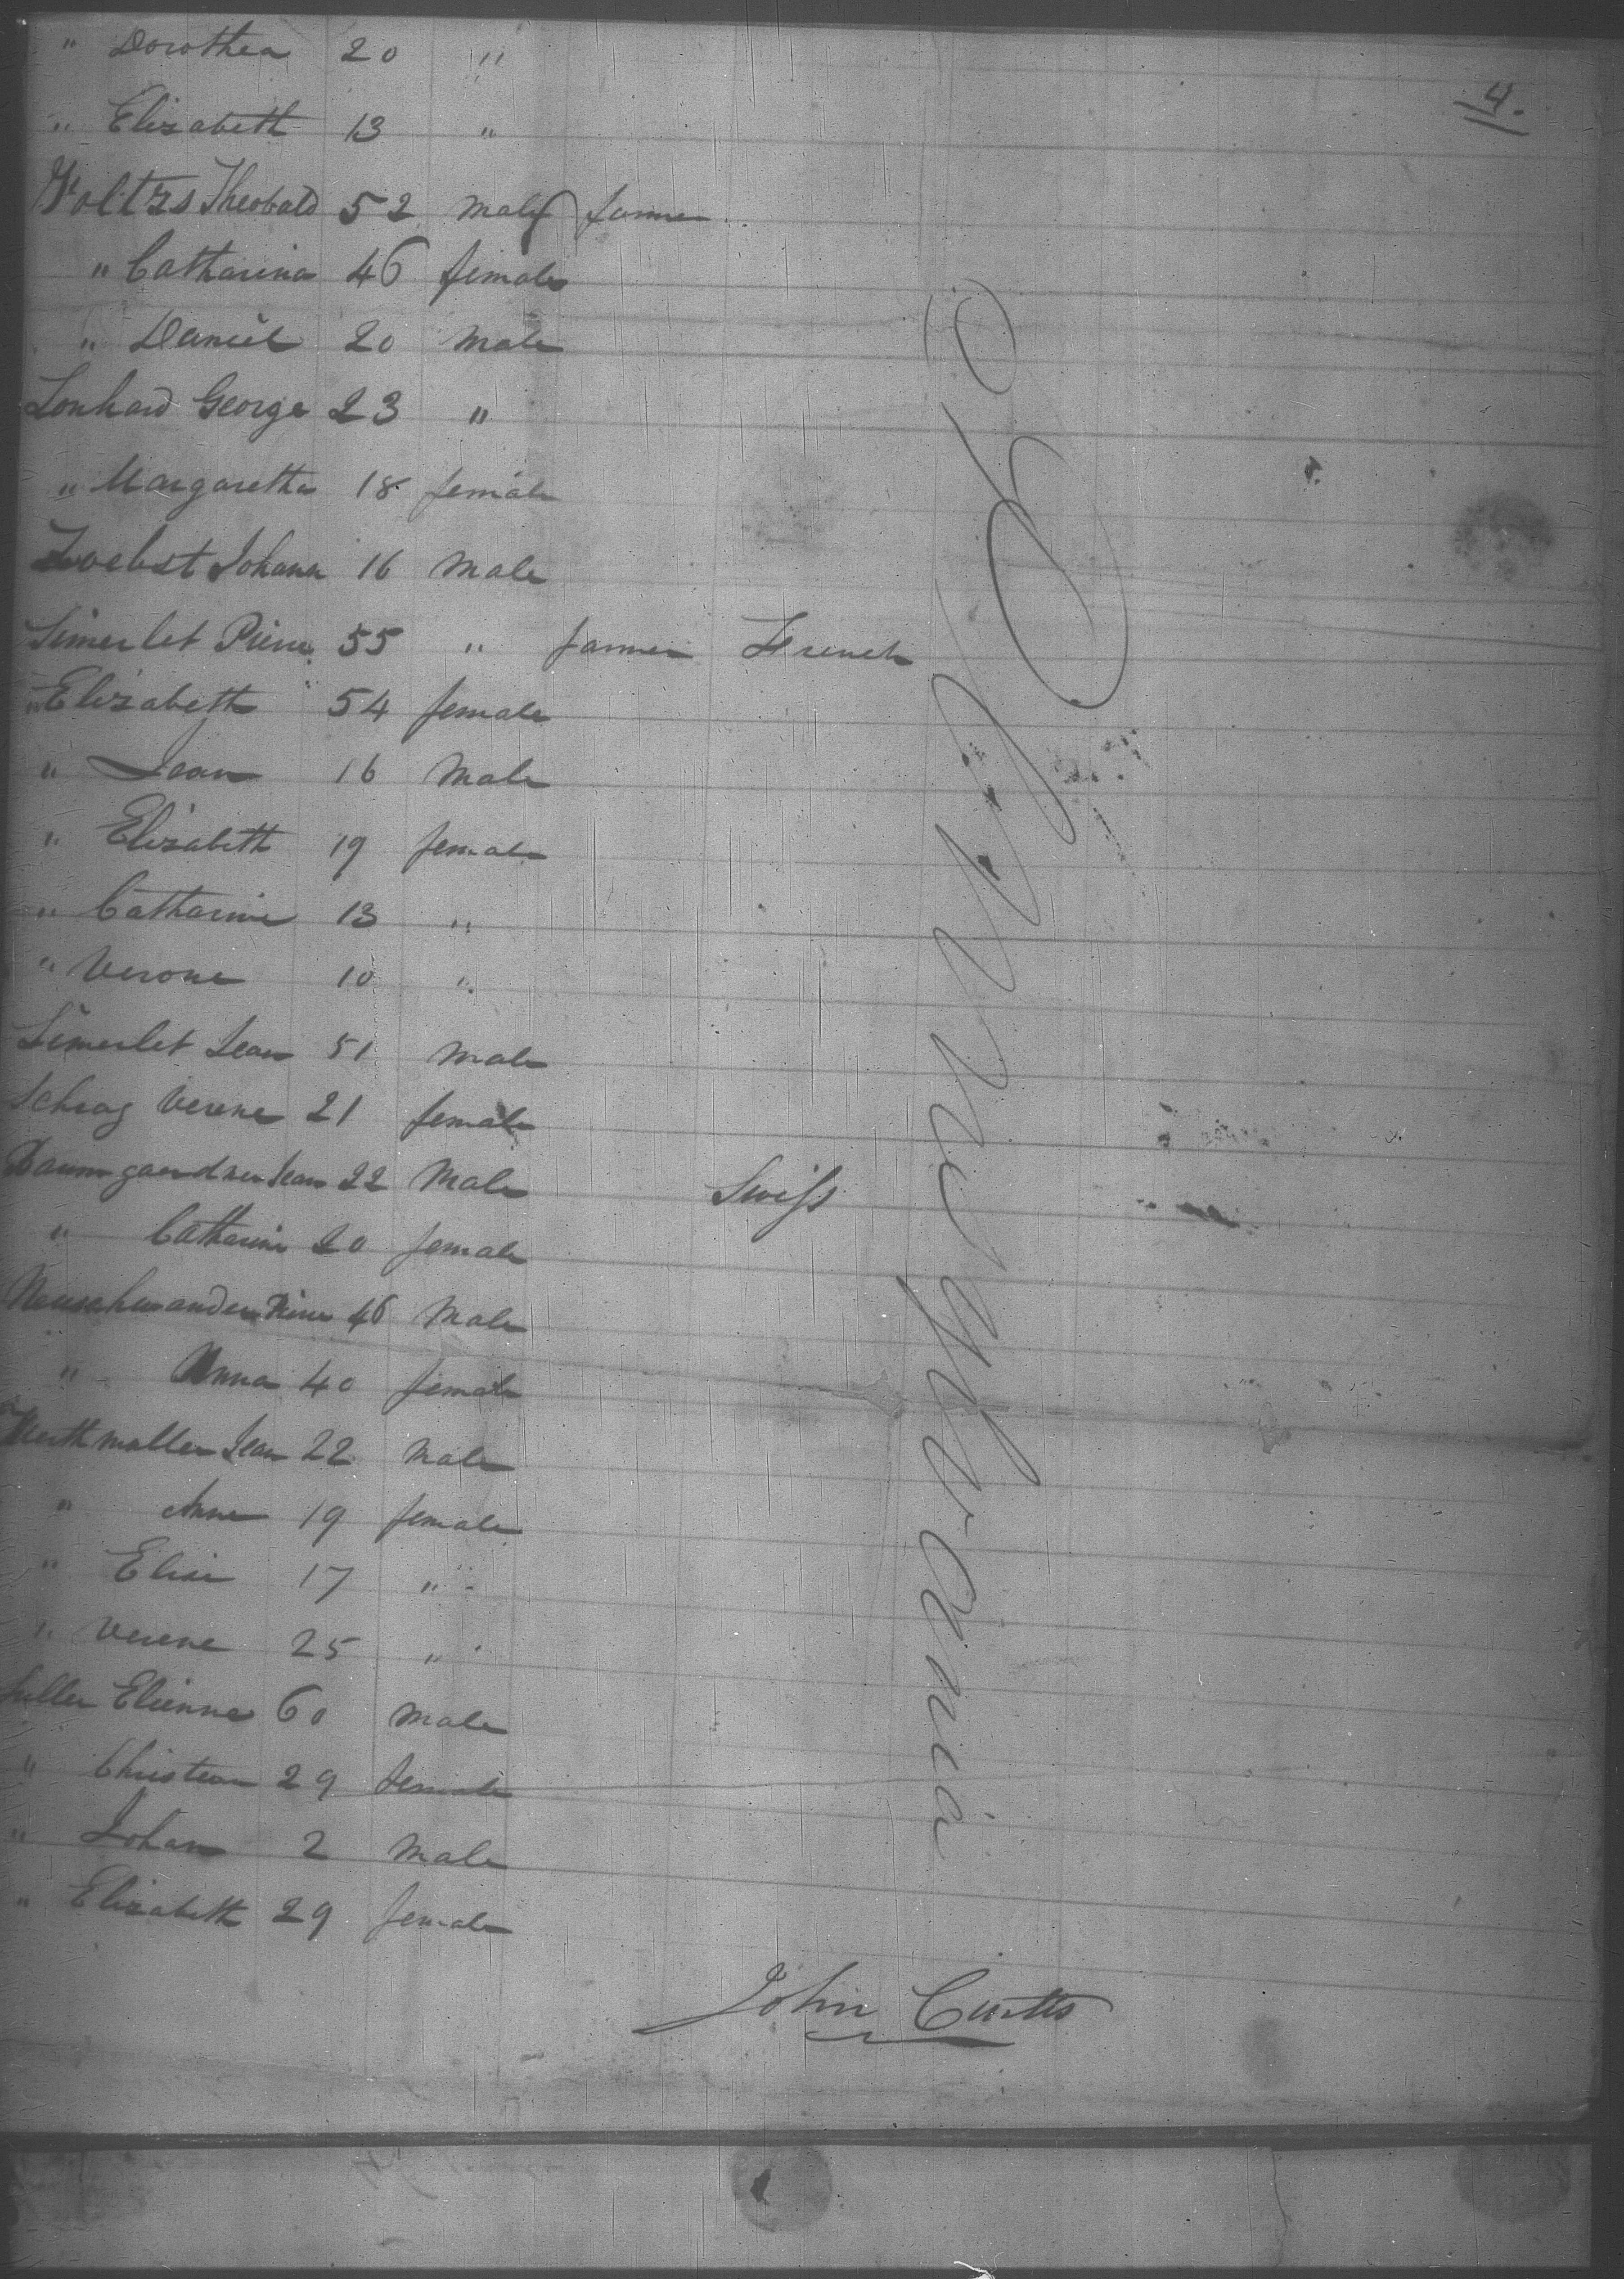 4.
" Dorothea 20 "
" Elizabeth 13 "
Voltzs Theobald 52 male farmer
" Catharina 46 female
" Daniel 20 male
Lonhard George 23 "
" Margaretha 18 female
Johann 16 male
Simerlet Pierre 55 " farmer French
" Elizabeth 54 female
" Jean 16 male
" Elizabeth 19 female
" Catharine 13 "
" Verone 10 "
Simerlet Jean 51 male
Schrag Verene 21 female
Baumgaerdner Jean 22 Male Swiss
" Catharine 20 female
Neuschwander Pierre 46 Male
" Anna 40 female
Jean 22 male
" Anne 19 female
" Elise 17 "
" Verene 25 "
Etienne 60 male
" Christean 29 female
" Johan 2 male
" Elizabeth 29 female
Pennsylvania
John Curtts